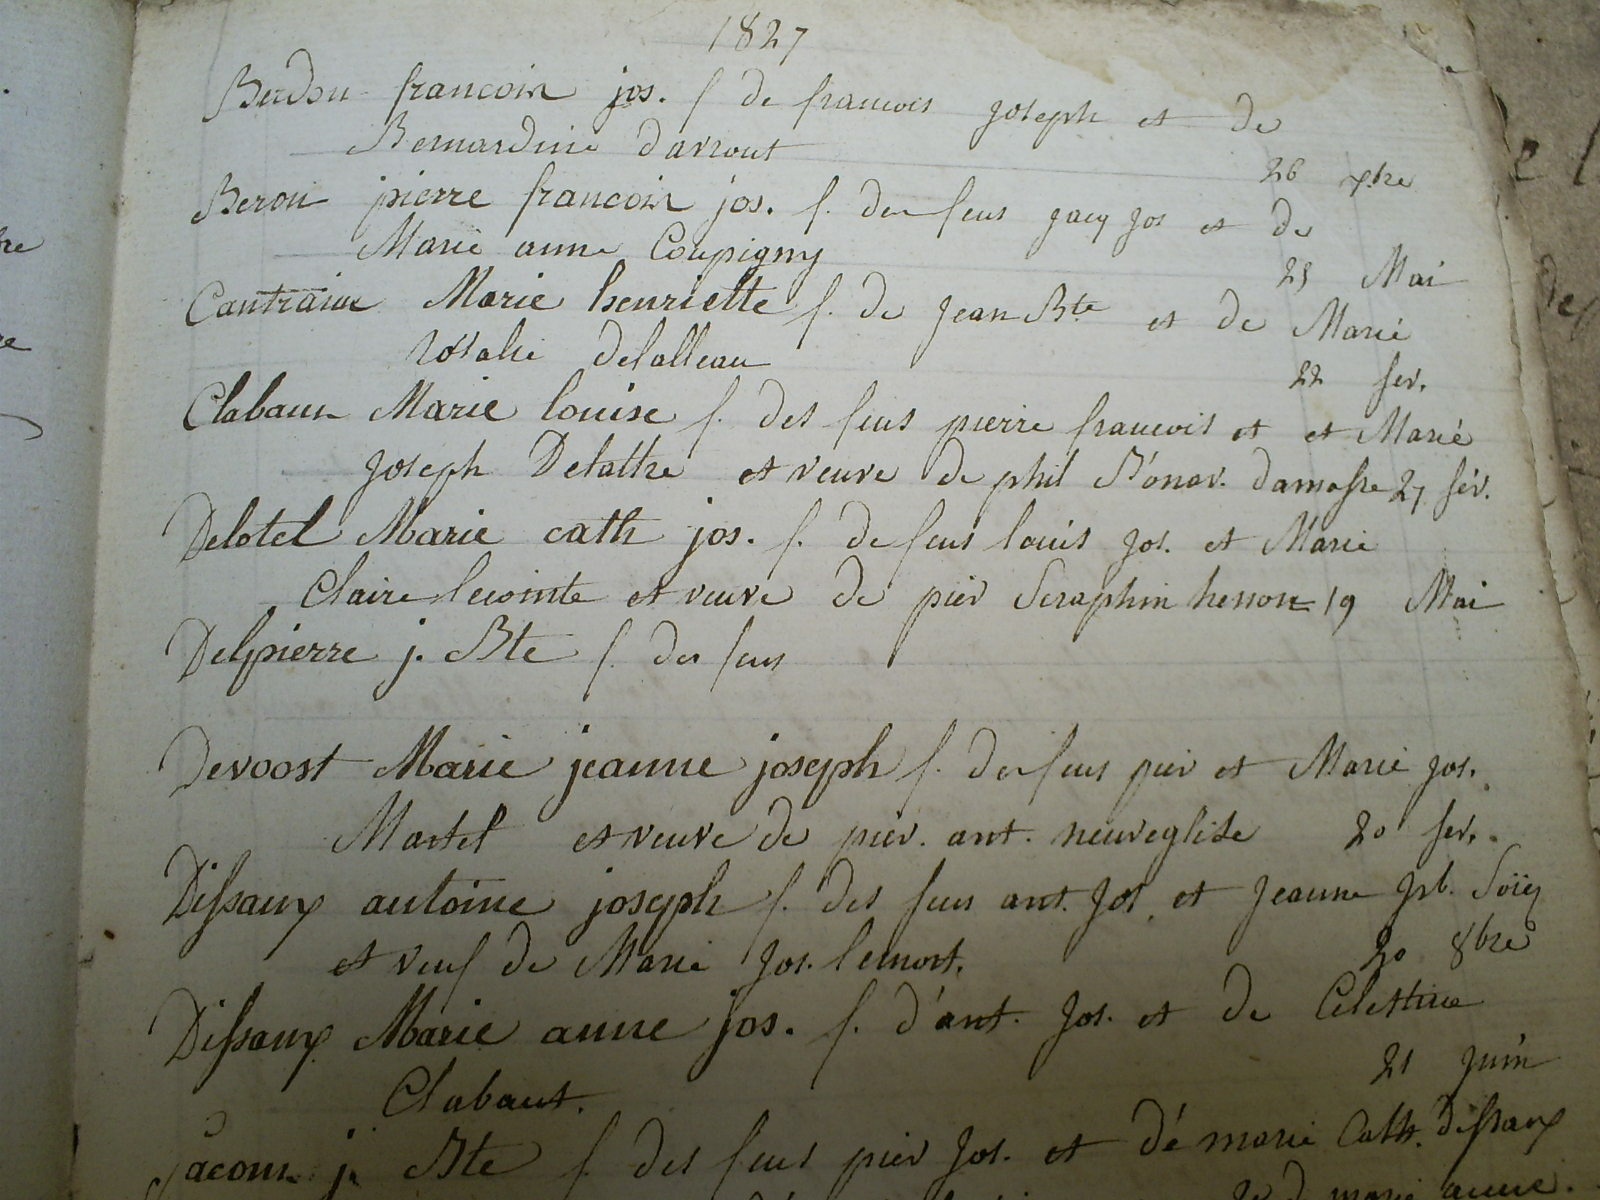 1827
Berdou francois jos. f de francois joseph et de
Bernardine davrout
26 xbre
Berou pierre francois jos. f. des feus jacq jos et de
Marie anne Coupigny
25 Mai
Cantraine Marie henriette f. de jean Bte et de Marie
rosalie delalleau
22 fev.
Clabaux Marie louise f. des feus pierre francois et et Marie
joseph Delattre et veuve de phil B'onav. damasse 27 fév.
Delotel Marie cath jos. f. de feus louis jos. et Marie
Claire lecointe et veuve de pier Seraphin henon 19 Mai
Delpierre j. Bte f. des feus
Devoost Marie jeanne joseph f. des feus pier et Marie jos.
Martel et veuve de pier. ant. neuveglise 20 fev.
Dissaux antoine joseph f. des feus ant. jos. et jeanne
et veuf de Marie jos. lemort.
20 8bre
Dissaux Marie anne jos. f. d'ant. jos. et de Celestine
Clabaut.
21 juin
Jacom j. Bte f. des feus pier jos. et dé marie Cath. dissaux
marie anne.